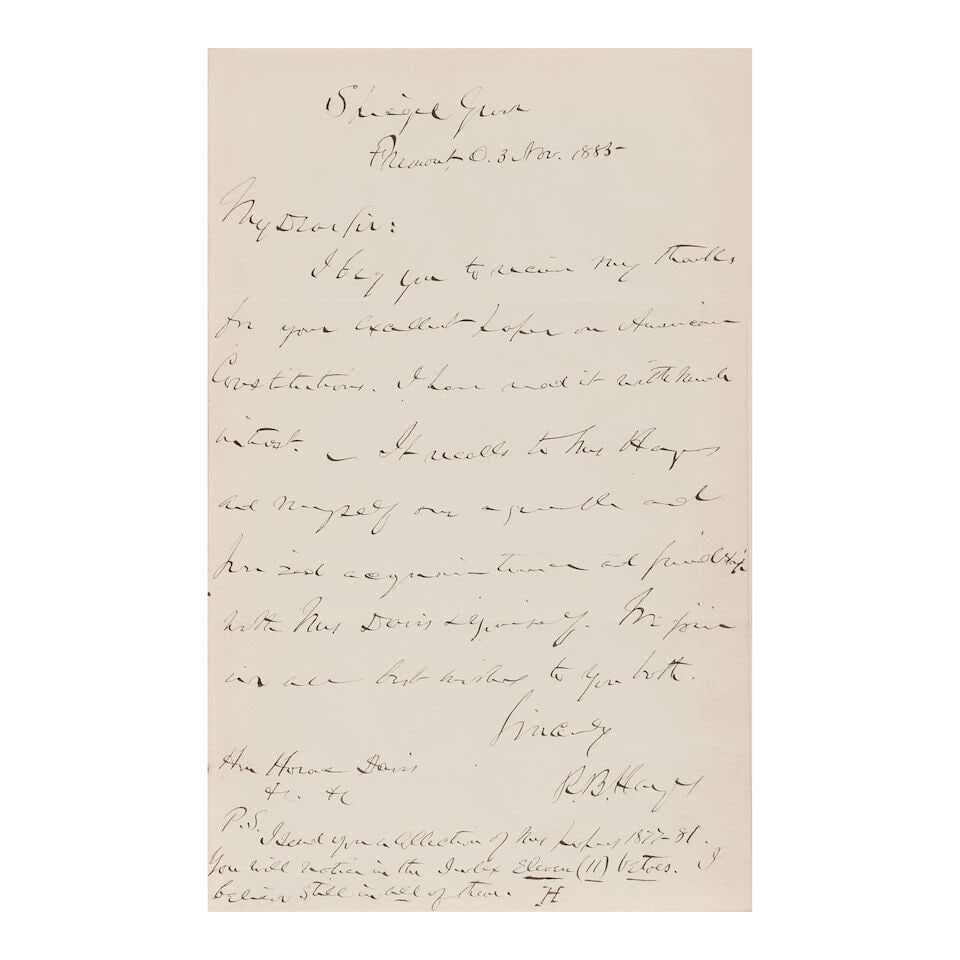 Spiegel Grove
Fremont, O. 3 Nov. 1885
My Dear Sir:
I beg you to receive my thanks
for your excellent paper on American
Constitutions. I have read it with much
interest. — It recalls to Mrs Hayes
and myself our agreeable and
prized acquaintance and friendship
with Mrs Davis & yourself. We join
in all best wishes to you both.
Sincerely
R. B. Hayes
Hon Horace Davis
&c &c
P.S. I send you a collection of my papers 1877-81.
You will notice in the Index Eleven (11) Vetoes. I
believe still in all of them. H